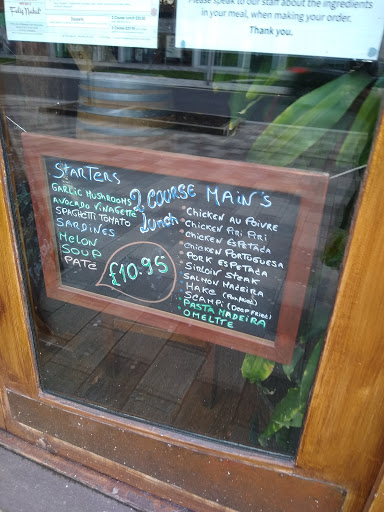 Please speak to our staff about the ingredients
in your meal, when making your order.
Thank you.
STARTERS
GARLIC MUSHROOMS
AVOCADO VINAGETTE
SPAGHETTI TOMATO
SARDINES
MELON
SOUP
PATE
2 COURSE
Lunch
£10.95
MAIN'S
CHICKEN AU POIVRE
CHICKEN PIRI PIRI
CHICKEN ESPETADA
CHICKEN PORTUGUESA
PORK ESPETADA
SIRLOIN STEAK
SALMON MADEIRA
HAKE
SCAMPI (DEEP FRIED)
PASTA MADEIRA
OMELTTE